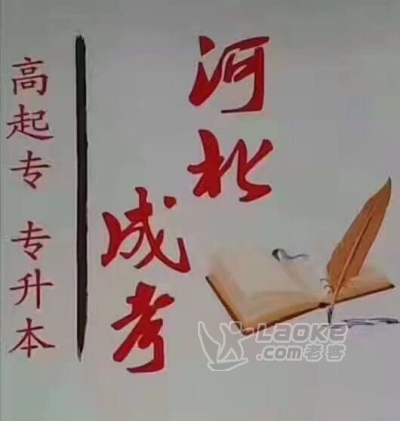 河北
成考
高起专 专升本
LAOKE
.com老客